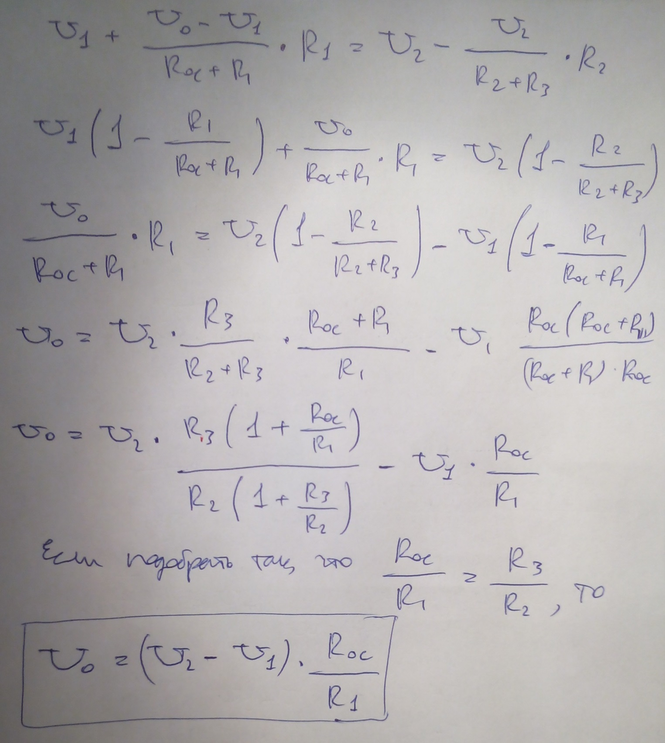 U₁ + (U₀ - U₁)/(Rос + R₁) · R₁ = U₂ - U₂/(R₂ + R₃) · R₂
U₁(1 - R₁/(Rос + R₁)) + U₀/(Rос + R₁) · R₁ = U₂(1 - R₂/(R₂ + R₃))
U₀/(Rос + R₁) · R₁ = U₂(1 - R₂/(R₂ + R₃)) - U₁(1 - R₁/(Rос + R₁))
U₀ = U₂ · R₃/(R₂ + R₃) · (Rос + R₁)/R₁ - U₁ Rос(Rос + R₁)/((Rос + R₁) · Rос)
U₀ = U₂ · R₃(1 + Rос/R₁)/(R₂(1 + R₃/R₂)) - U₁ · Rос/R₁
Если подобрать так, что Rос/R₁ = R₃/R₂, то
U₀ = (U₂ - U₁) · Rос/R₁